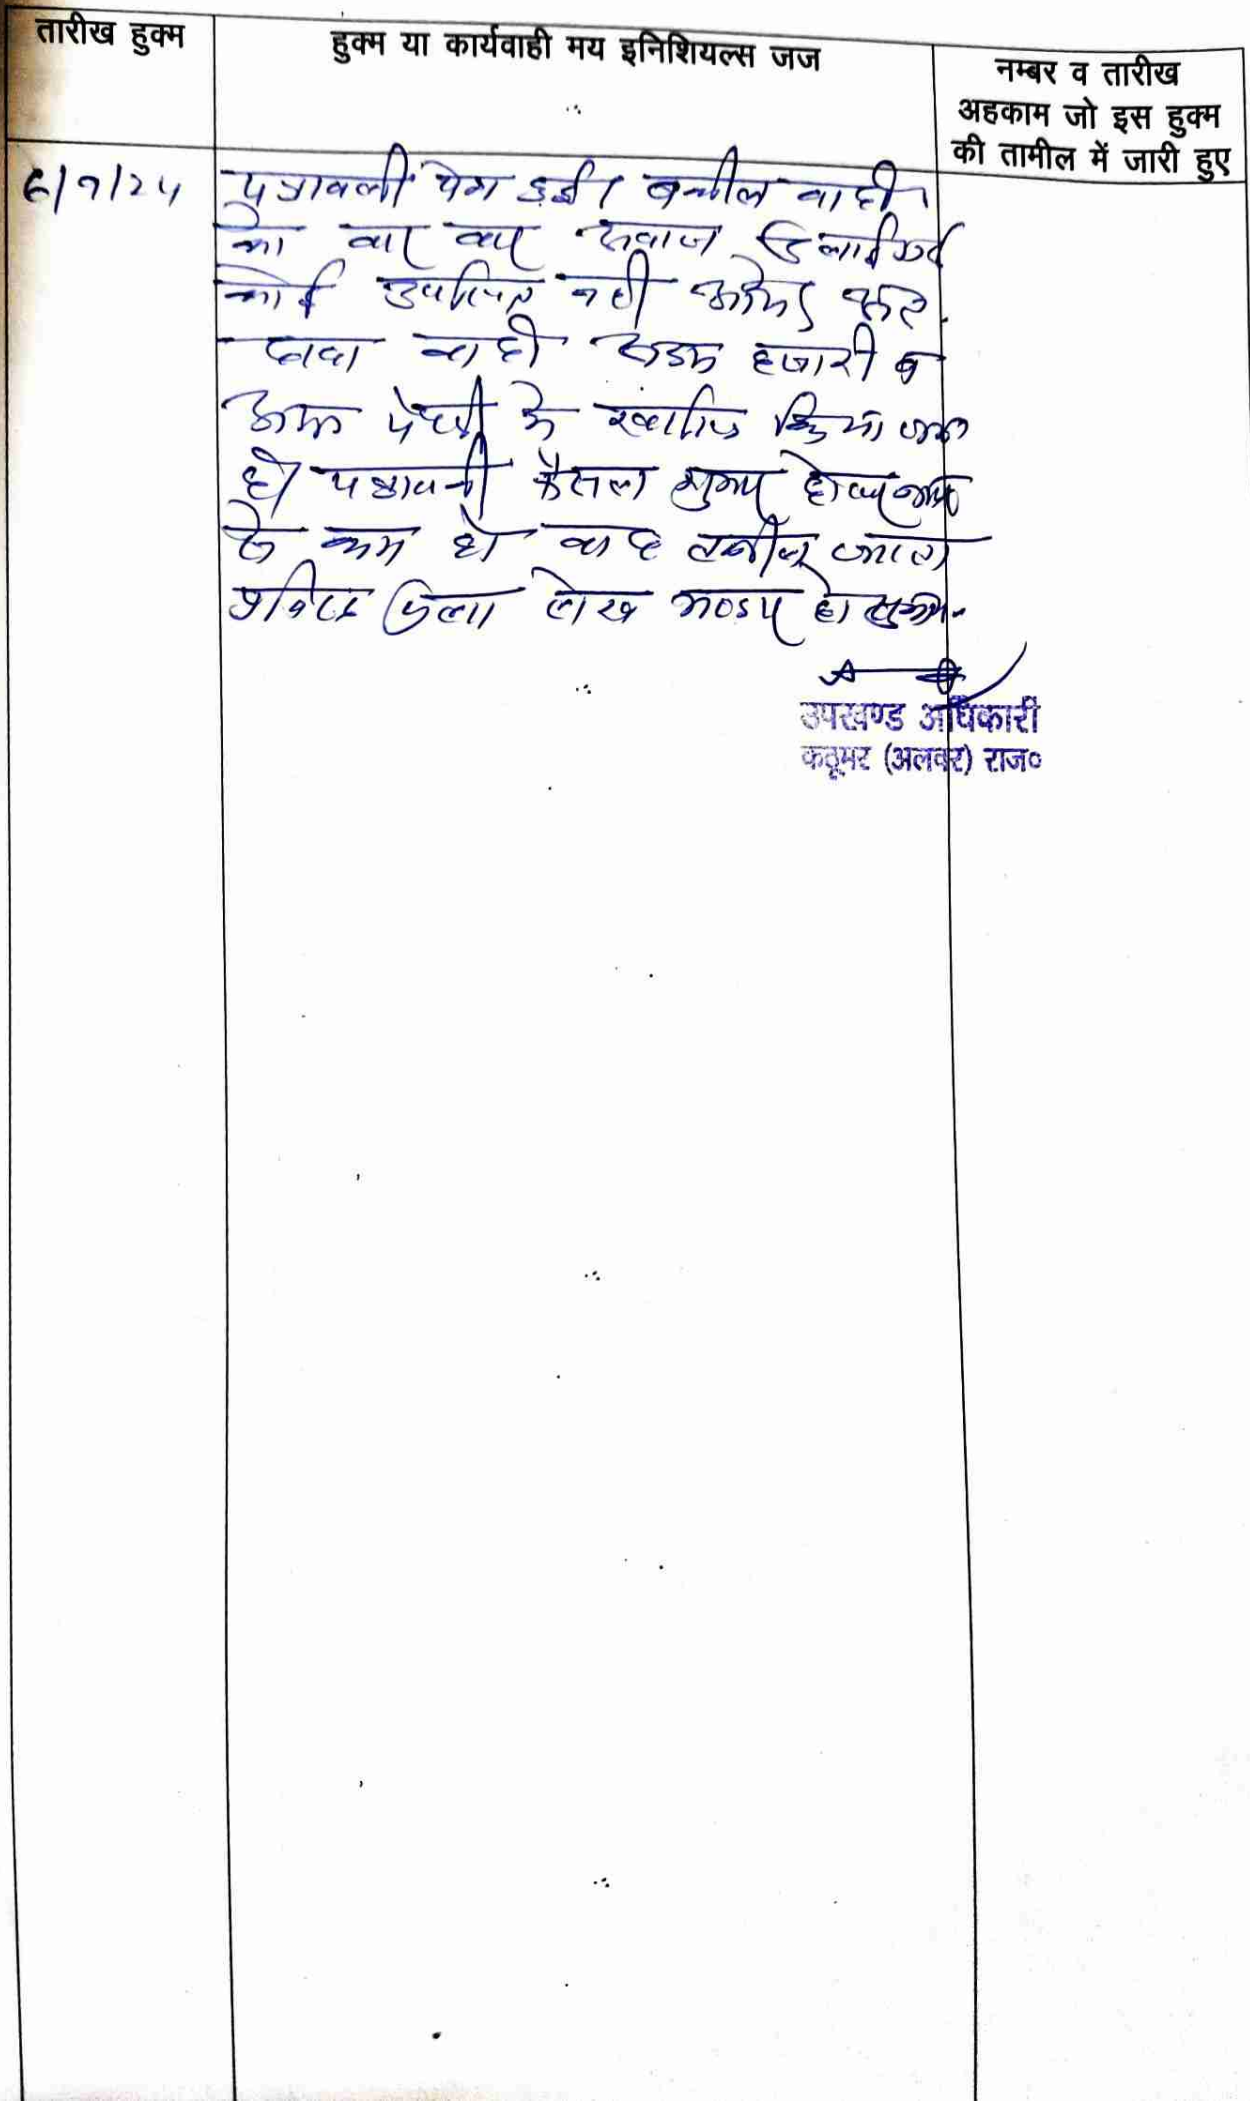 तारीख हुक्म
हुक्म या कार्यवाही मय इनिशियल्स जज
नम्बर व तारीख
अहकाम जो इस हुक्म
की तामील में जारी हुए
पत्रावली पेश हुई। वकील वादी
को बार बार आवाज दिलाई गई
कोई उपस्थित नही आये। अतः
दावा वादी अदम हजारी व
अदम पैरवी मे खारिज किया जाता
है। पत्रावली फैसल शुमार होकर नम्बर
से कम हो बाद तकमील जाप्ता
दाखिल जिला लेख भण्डार हो
उपखण्ड अधिकारी
कठूमर (अलवर) राज०